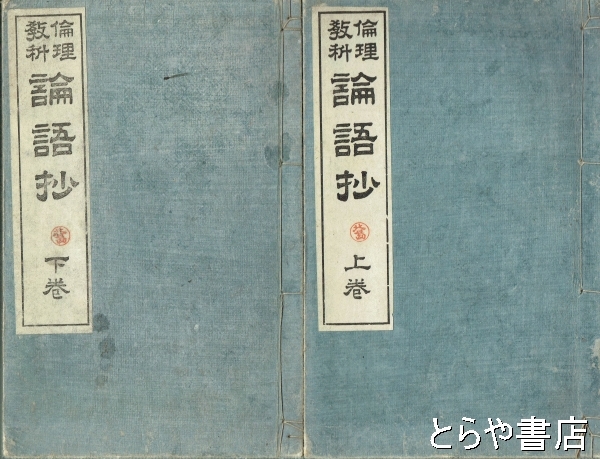 倫理
教科
論語抄
下巻
倫理
教科
論語抄
上巻
とらや書店